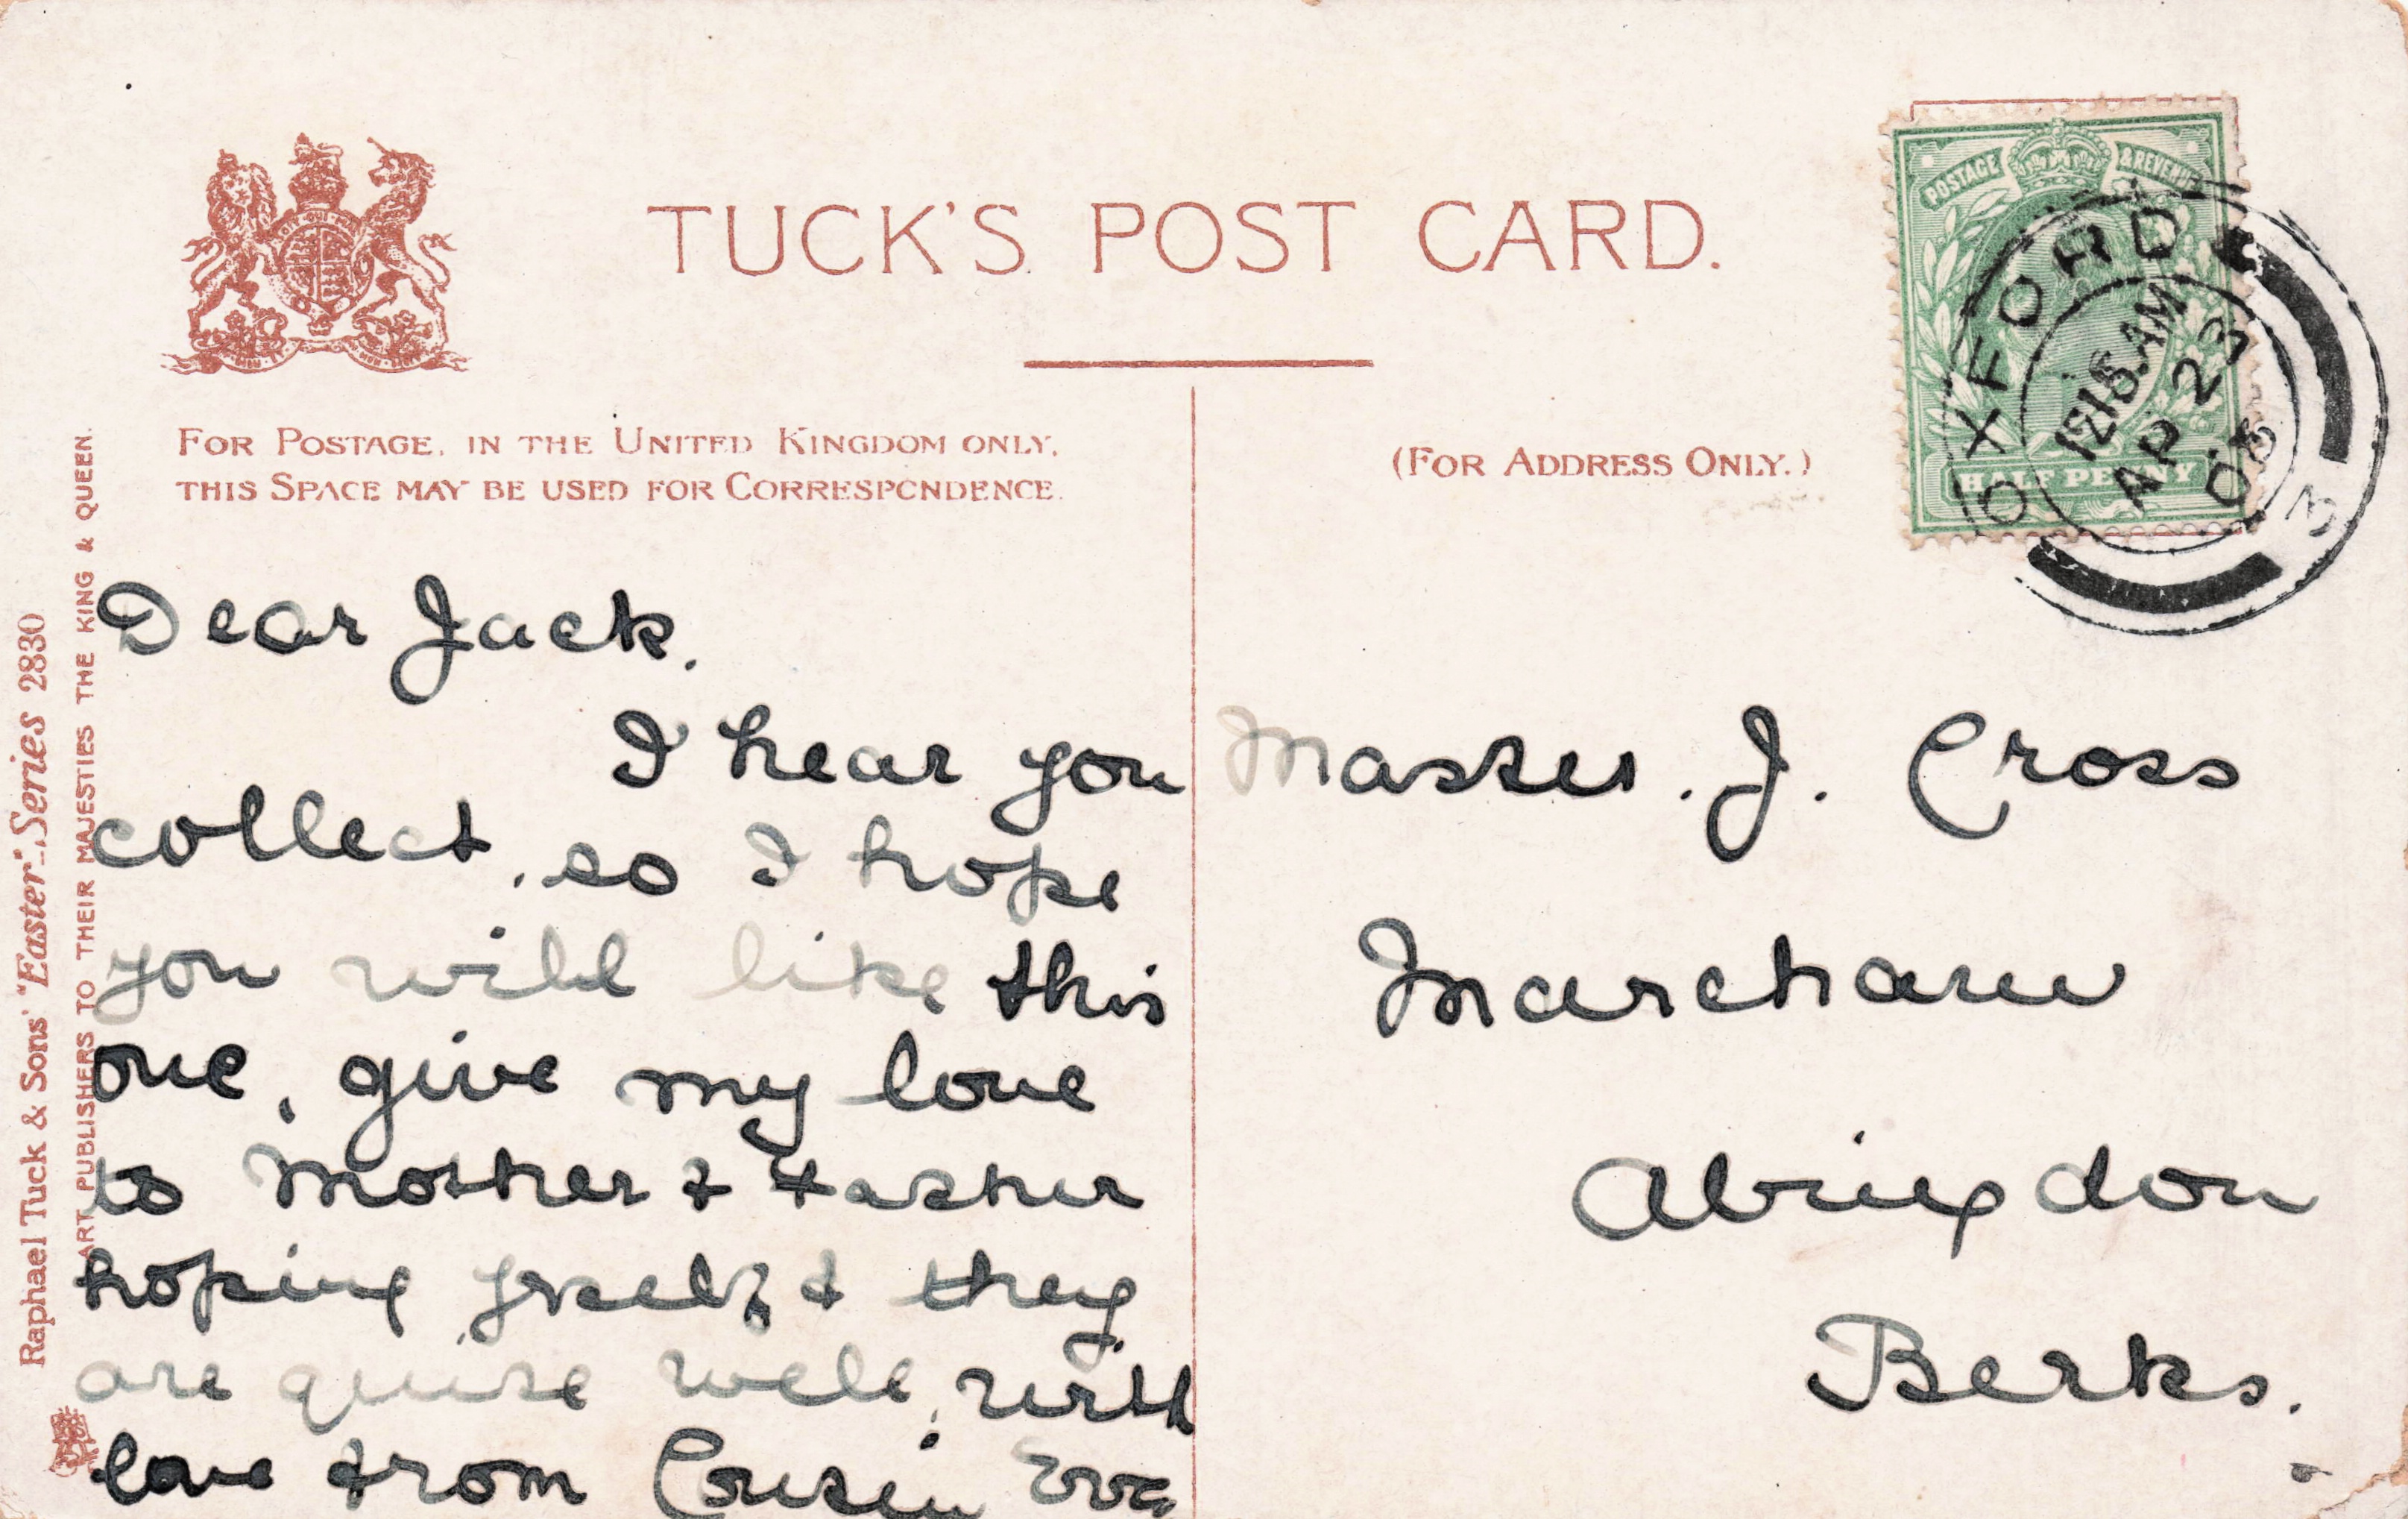 TUCK'S POST CARD.
FOR POSTAGE, IN THE UNITED KINGDOM ONLY,
THIS SPACE MAY BE USED FOR CORRESPONDENCE.
(FOR ADDRESS ONLY.)
POSTAGE & REVENUE
HALF PENNY
OXFORD
1215 AM
AP 23
05
3
Raphael Tuck & Sons' "Easter" Series 2830
ART PUBLISHERS TO THEIR MAJESTIES THE KING & QUEEN.
Dear Jack.
I hear you
collect, so I hope
you will like this
one, give my love
to Mother & Father
hoping yrself & they
are quite well, with
love from Cousin Eva
Master. J. Cross
Marcham
Abingdon
Berks.